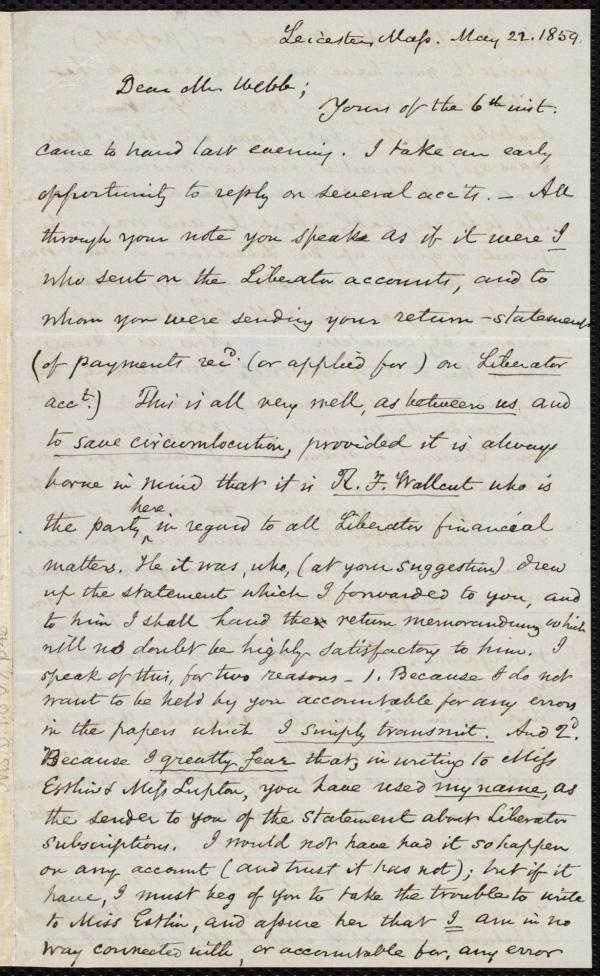 Leicester, Mass. May 22. 1859.
Dear Mr. Webb;
Yours of the 6th inst.
came to hand last evening. I take an early
opportunity to reply on several acc'ts. — All
through your note you speak as if it were I
who sent on the Liberator accounts, and to
whom you were sending your return-statements
(of payments rec'd. (or applied for) on Liberator
acct.) This is all very well, as between us and
to save circumlocution, provided it is always
borne in mind that it is R. F. Wallcut who is
here
the party ‸ in regard to all Liberator financial
matters. He it was, who, (at your suggestion) drew
up the statement which I forwarded to you, and
to him I shall hand the return memorandum which
will no doubt be highly satisfactory to him. I
speak of this, for two reasons — 1. Because I do not
want to be held by you accountable for any errors
in the papers which I simply transmit. And 2d.
Because I greatly fear that, in writing to Miss
Estlin & Miss Lupton, you have used my name, as
the sender to you of the statement about Liberator
subscriptions. I would not have had it so happen
on any account (and trust it has not); but if it
have, I must beg of you to take the trouble to write
to Miss Estlin, and assure her that I am in no
way connected with, or accountable for, any error